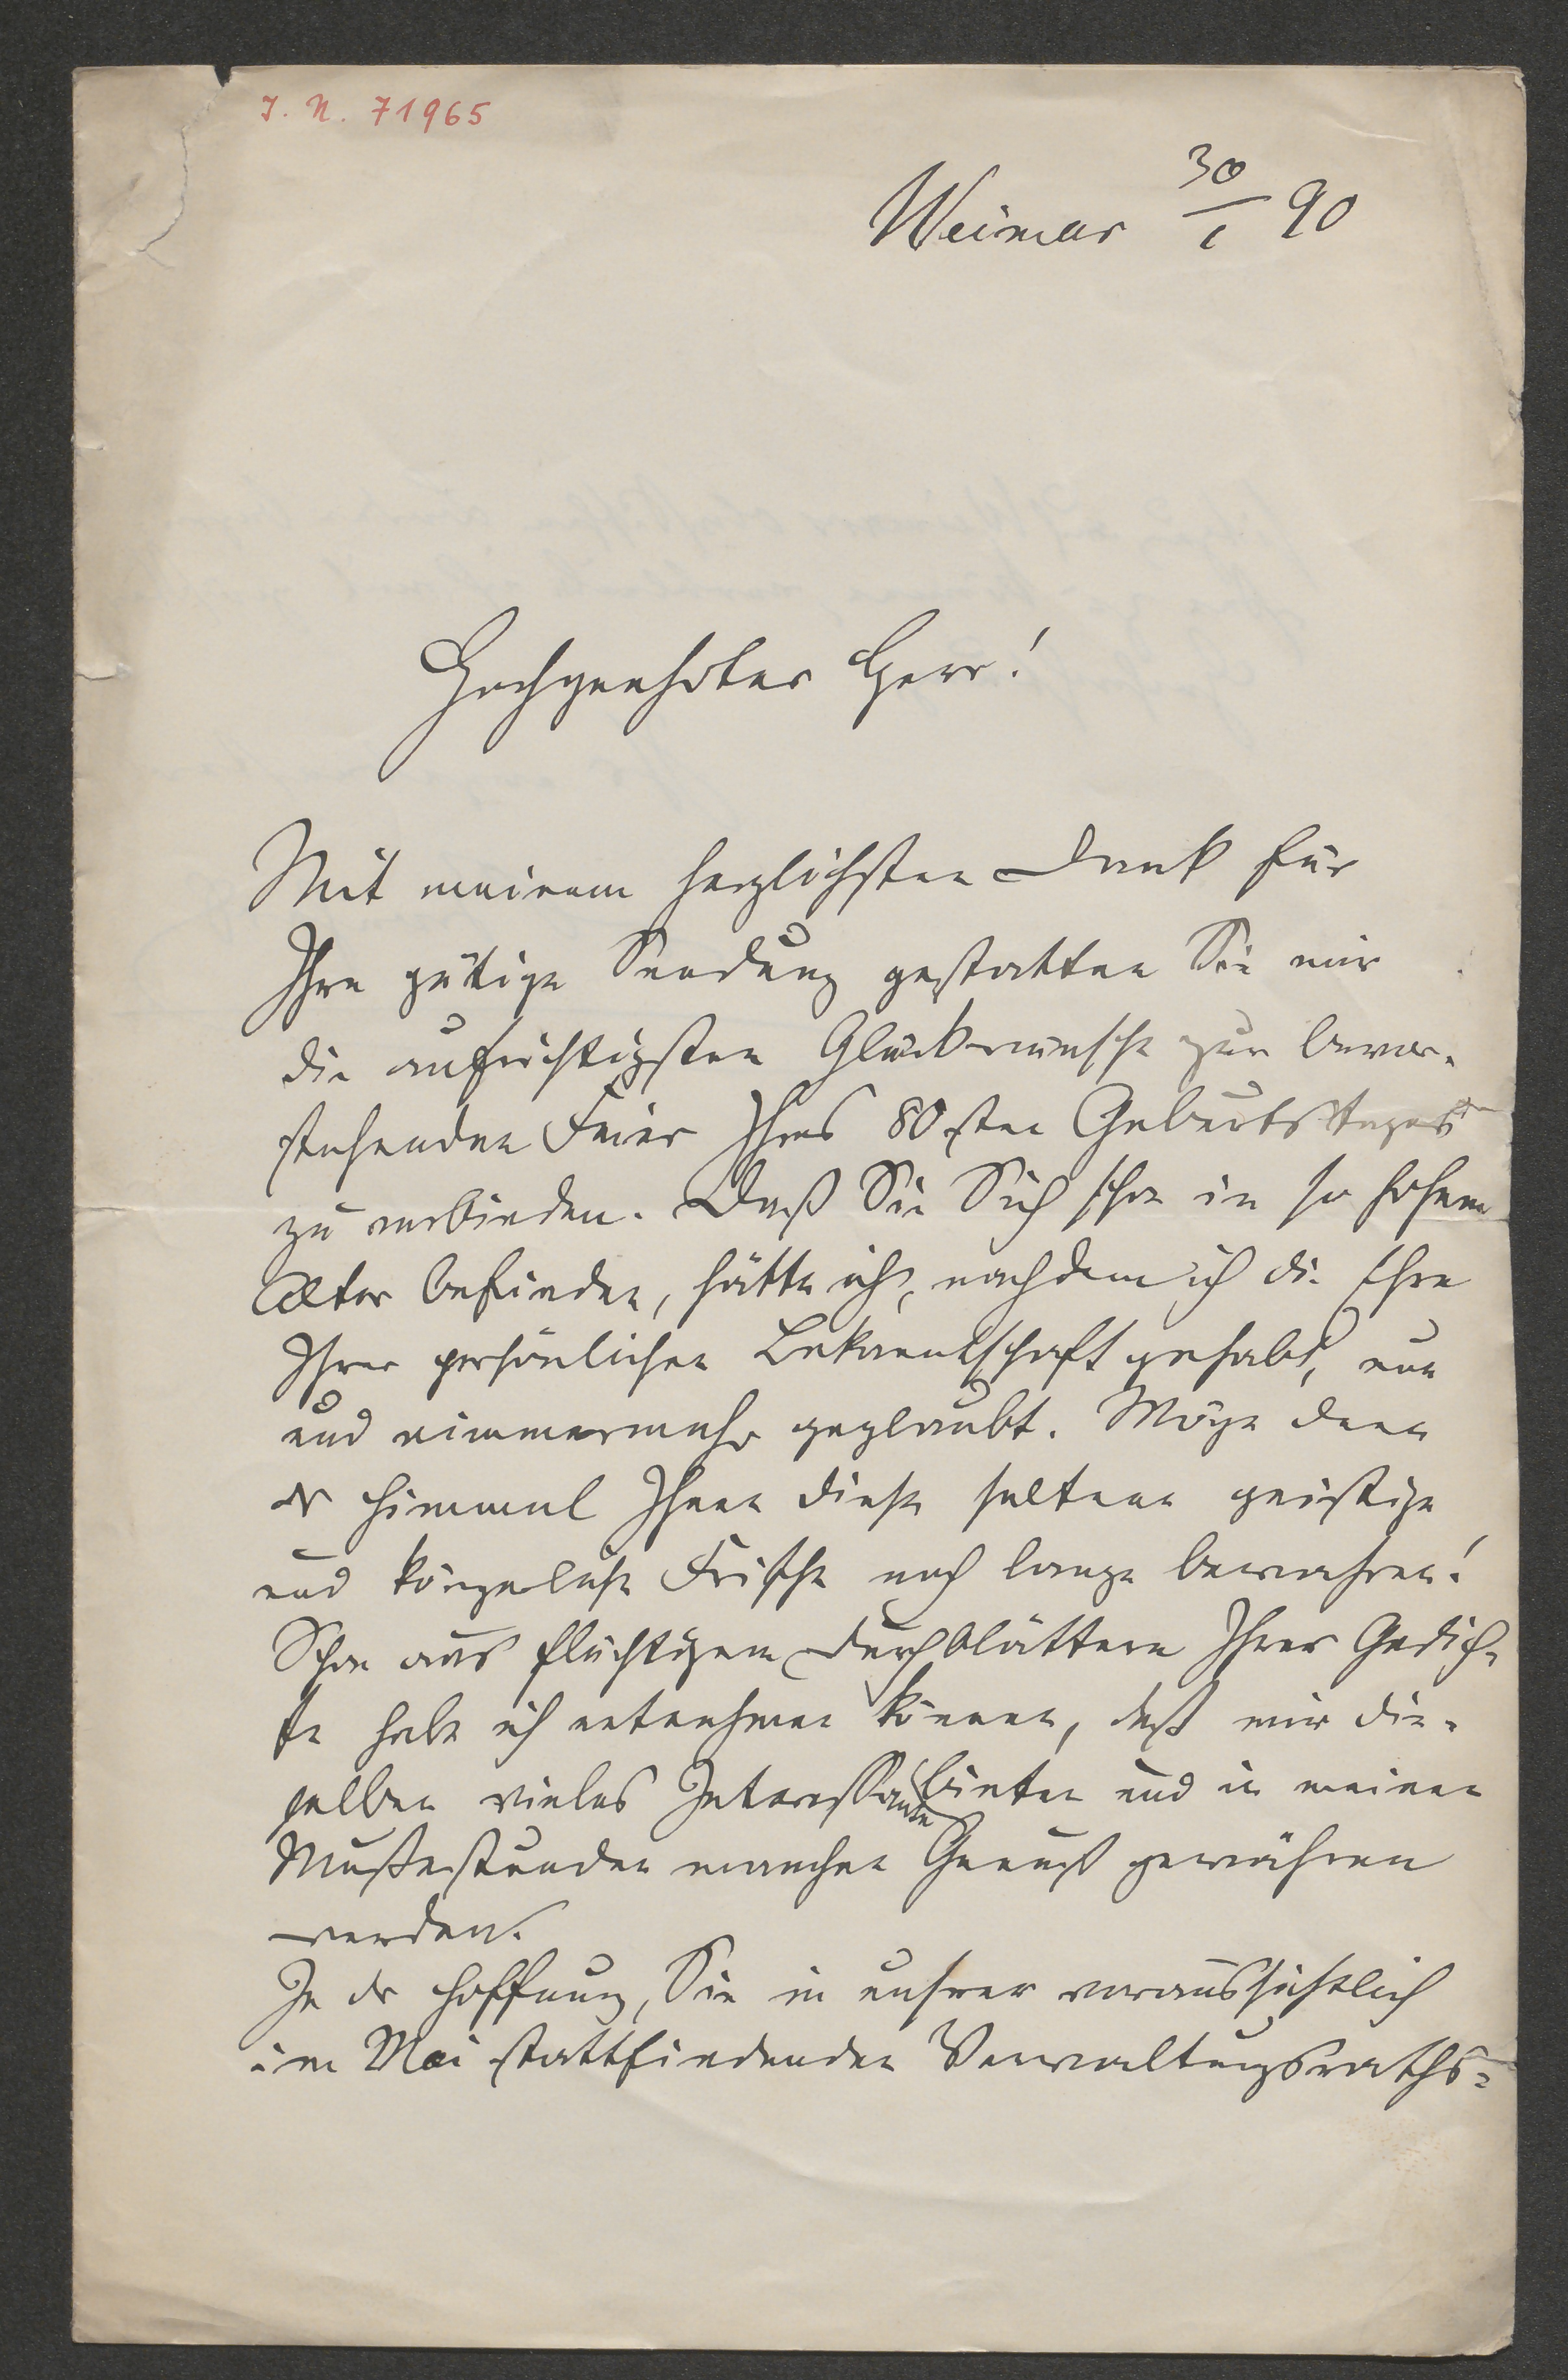 J. N. 71965
Weimar 30/1 90
Hochgeehrter Herr!
Mit meinem herzlichsten Dank für
Ihre gütige Sendung gestatten Sie mir
die aufrichtigsten Glückwünsche zur bevor-
stehenden Feier Ihres 80sten Geburtstages
zu verbinden. Daß Sie Sich schon in so hohem
Alter befinden, hätte ich, nachdem ich die Ehre
Ihrer persönlichen Bekanntschaft gehabt, nun
und nimmermehr geglaubt. Möge denn
der Himmel Ihnen diese seltene geistige
und körperliche Frische noch lange bewahren!
Schon aus flüchtigem Durchblättern Ihrer Gedich-
te habe ich entnehmen können, daß mir die-
selben vieles Interessante bieten und in meinen
Mußestunden manchen Genuß gewähren
werden.
In der Hoffnung, Sie in unsrer voraussichtlich
im Mai stattfindenden Verwaltungsraths-